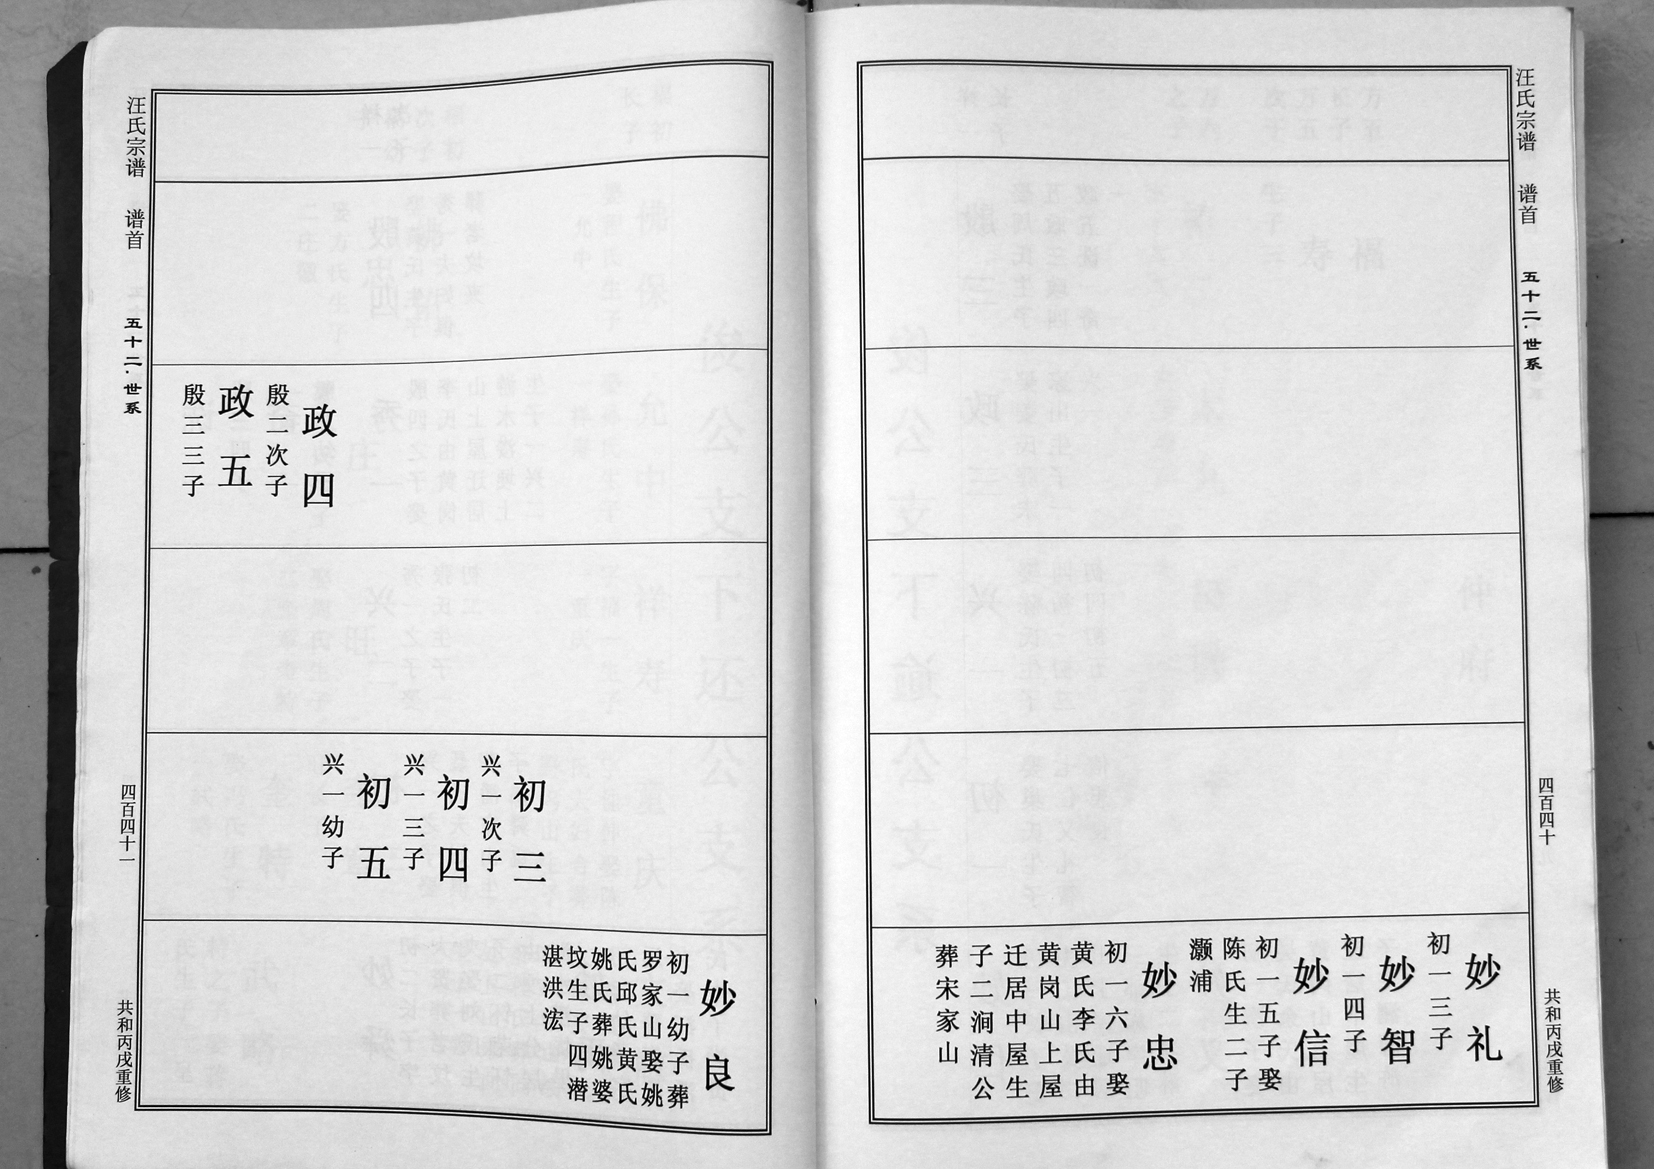 汪氏宗谱
谱首
五十二·世系
四百四十
共和丙戌重修
妙礼
初一三子
妙智
初一四子
妙信
初一五子娶
陈氏生二子
灏浦
妙忠
初一六子娶
黄氏李氏由
黄岗山上屋
迁居中屋生
子二涧清公
葬宋家山
妙良
初一幼子葬
罗家山娶姚
氏邱氏黄氏
姚氏葬姚婆
坟生子四潜
湛洪浤
初三
兴一次子
初四
兴一三子
初五
兴一幼子
政四
殷二次子
政五
殷三三子
汪氏宗谱
谱首
五十二·世系
四百四十一
共和丙戌重修